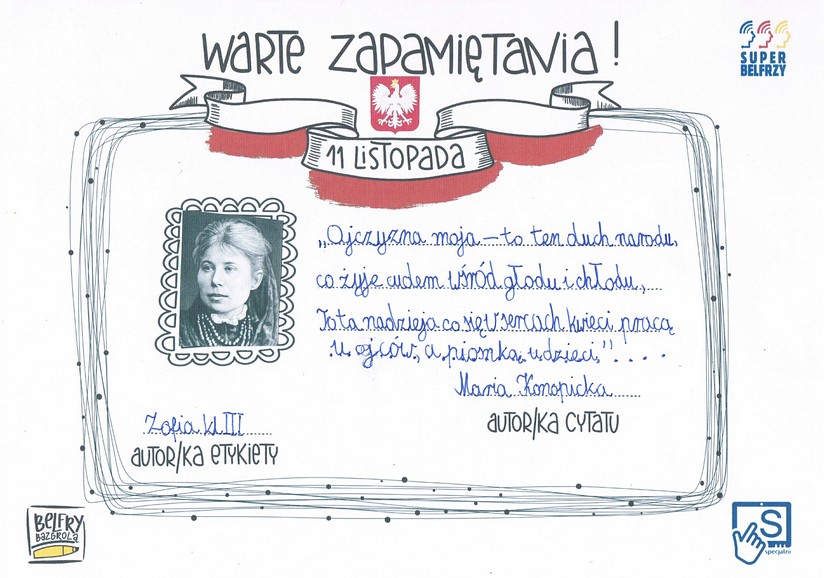 WARTE ZAPAMIĘTANIA!
SUPER
BELFRZY
11 LISTOPADA
„Ojczyzna moja – to ten duch narodu,
co żyje cudem wśród głodu i chłodu,
To ta nadzieja co się w sercach kwieci pracą
u ojców, a piosnką u dzieci,"....
Maria Konopicka
AUTOR/KA CYTATU
Zofia kl III
AUTOR/KA ETYKIETY
BELFRY
BAZGROLĄ
S
specjalni